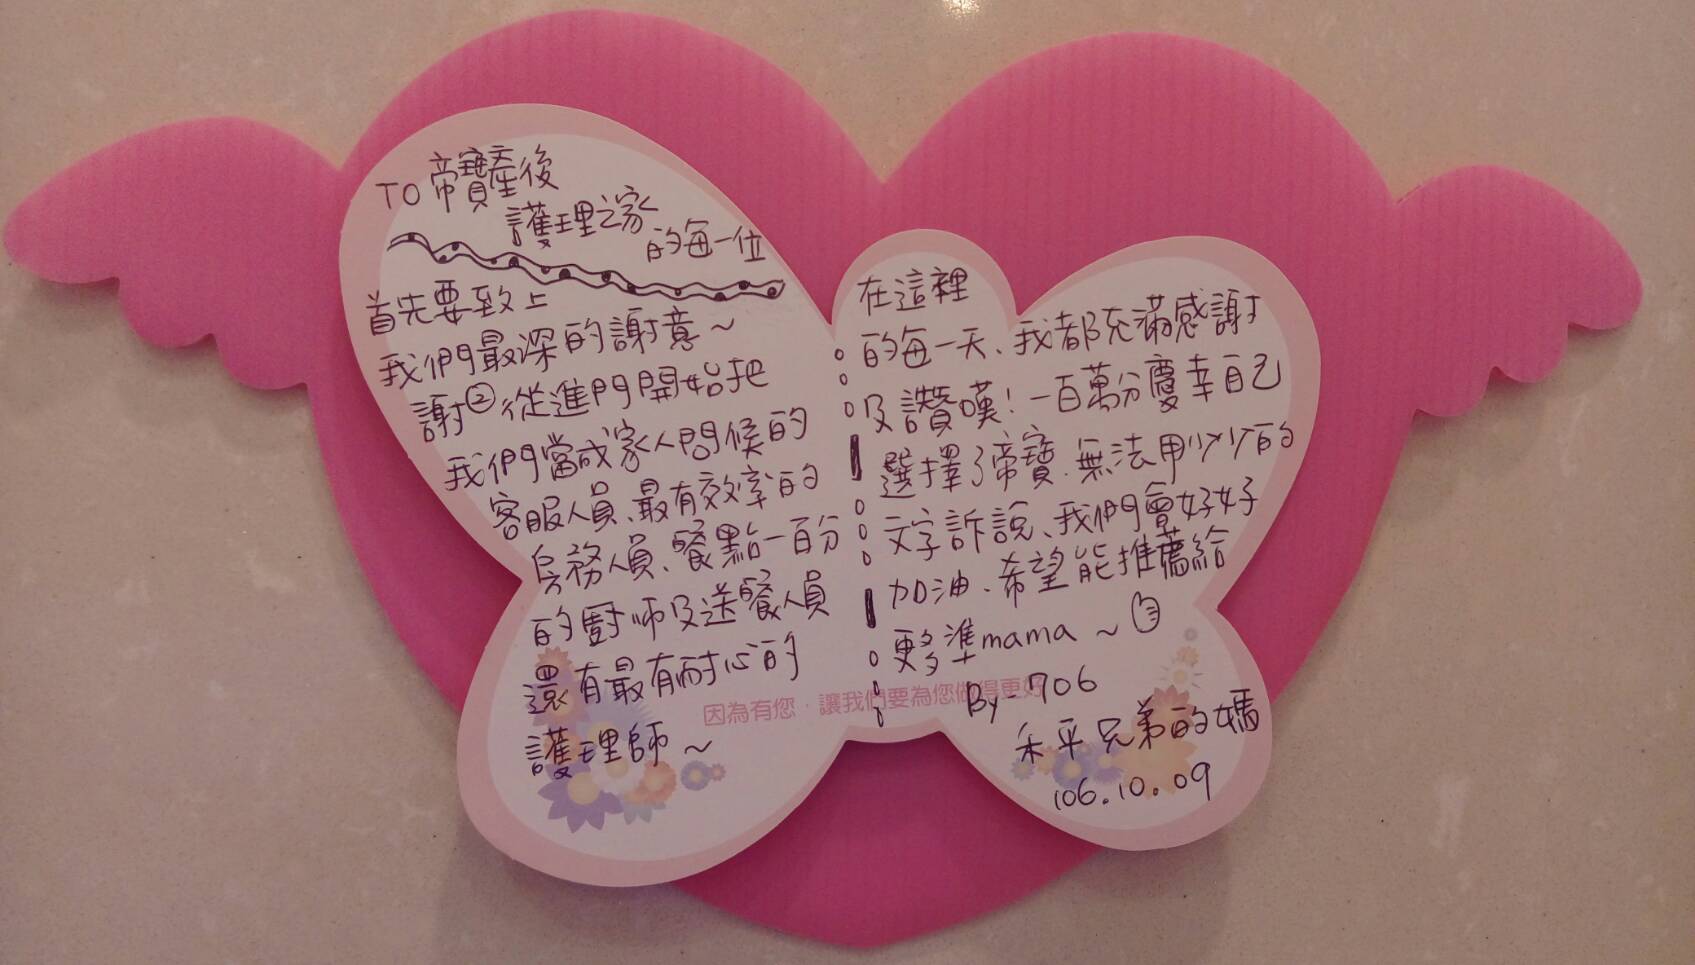 TO 帝寶產後
護理之家
的每一位
首先要致上
我們最深的謝意~
謝②從進門開始把
我們當成家人問候的
客服人員、最有效率的
房務人員、餐點一百分
的廚師及送餐人員
還有最有耐心的
護理師~
在這裡
的每一天、我都充滿感謝
及讚嘆!一百萬分慶幸自己
選擇了帝寶.無法用少少的
文字訴說、我們會好好
加油、希望能推薦給
更多準mama~
因為有您,讓我們要為您做得更好
By-706
禾平兄弟的媽
106.10.09